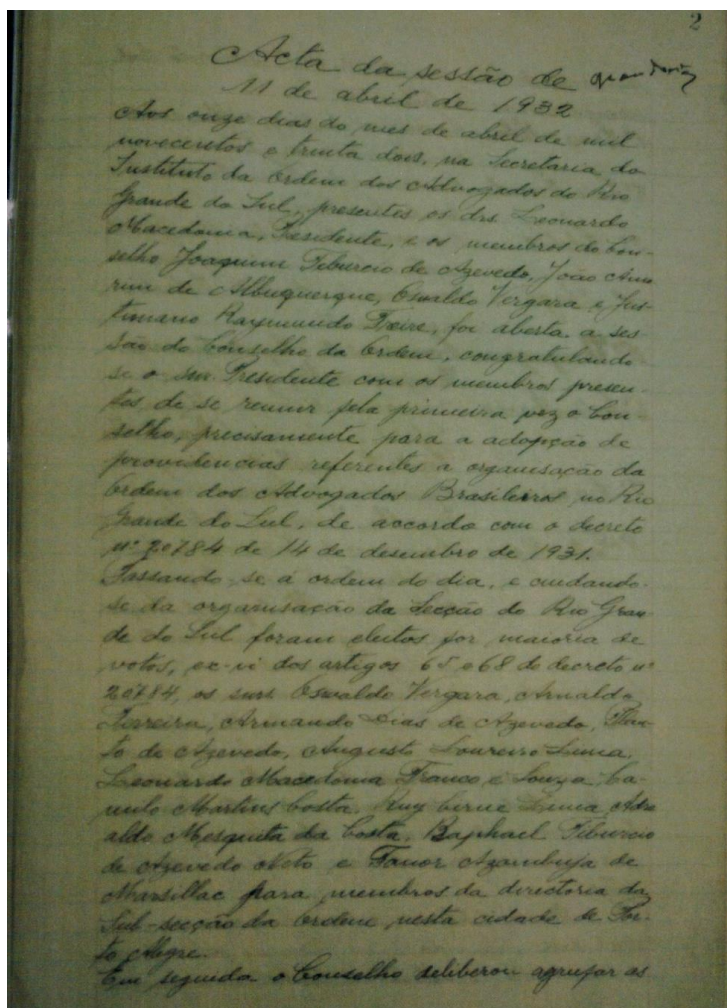 2
Acta da sessão de
11 de abril de 1932
Aos onze dias do mes de abril de mil
novecentos e trinta dois, na Secretaria do
Instituto da Ordem dos Advogados do Rio
Grande do Sul, presentes os drs. Leonardo
Macedonia, Presidente, e os membros do Con-
selho Joaquim Tiburcio de Azevedo, João Amo-
rim de Albuquerque, Oswaldo Vergara e Jus-
tiniano Raymundo Freire, foi aberta a ses-
são do Conselho da Ordem, congratulando-
se o snr. Presidente com os membros presen-
tes de se reunir pela primeira vez o Con-
selho, precisamente para a adopção de
providencias referentes a organisação da
Ordem dos Advogados Brasileiros, no Rio
Grande do Sul, de accordo com o decreto
nº 20784 de 14 de desembro de 1931.
Passando-se a ordem do dia, e cuidando-
se da organisação da Secção do Rio Gran-
de do Sul foram eleitos por maioria de
votos, ex-vi dos artigos 65 e 68 do decreto nº
20784, os snrs Oswaldo Vergara, Arnaldo
Ferreira, Armando Dias de Azevedo,
de Azevedo, Augusto Loureiro Lima,
Leonardo Macedonia Franco e Souza, Ca-
millo Martins Costa, Ruy Cirne Lima, Adro-
aldo Mesquita da Costa, Raphael Tiburcio
de Azevedo Neto e Fanor Azambuja de
Marsillac para membros da directoria da
Sub-secção da Ordem, nesta cidade de Por-
to Alegre.
Em seguida o Conselho deliberou agrupar as